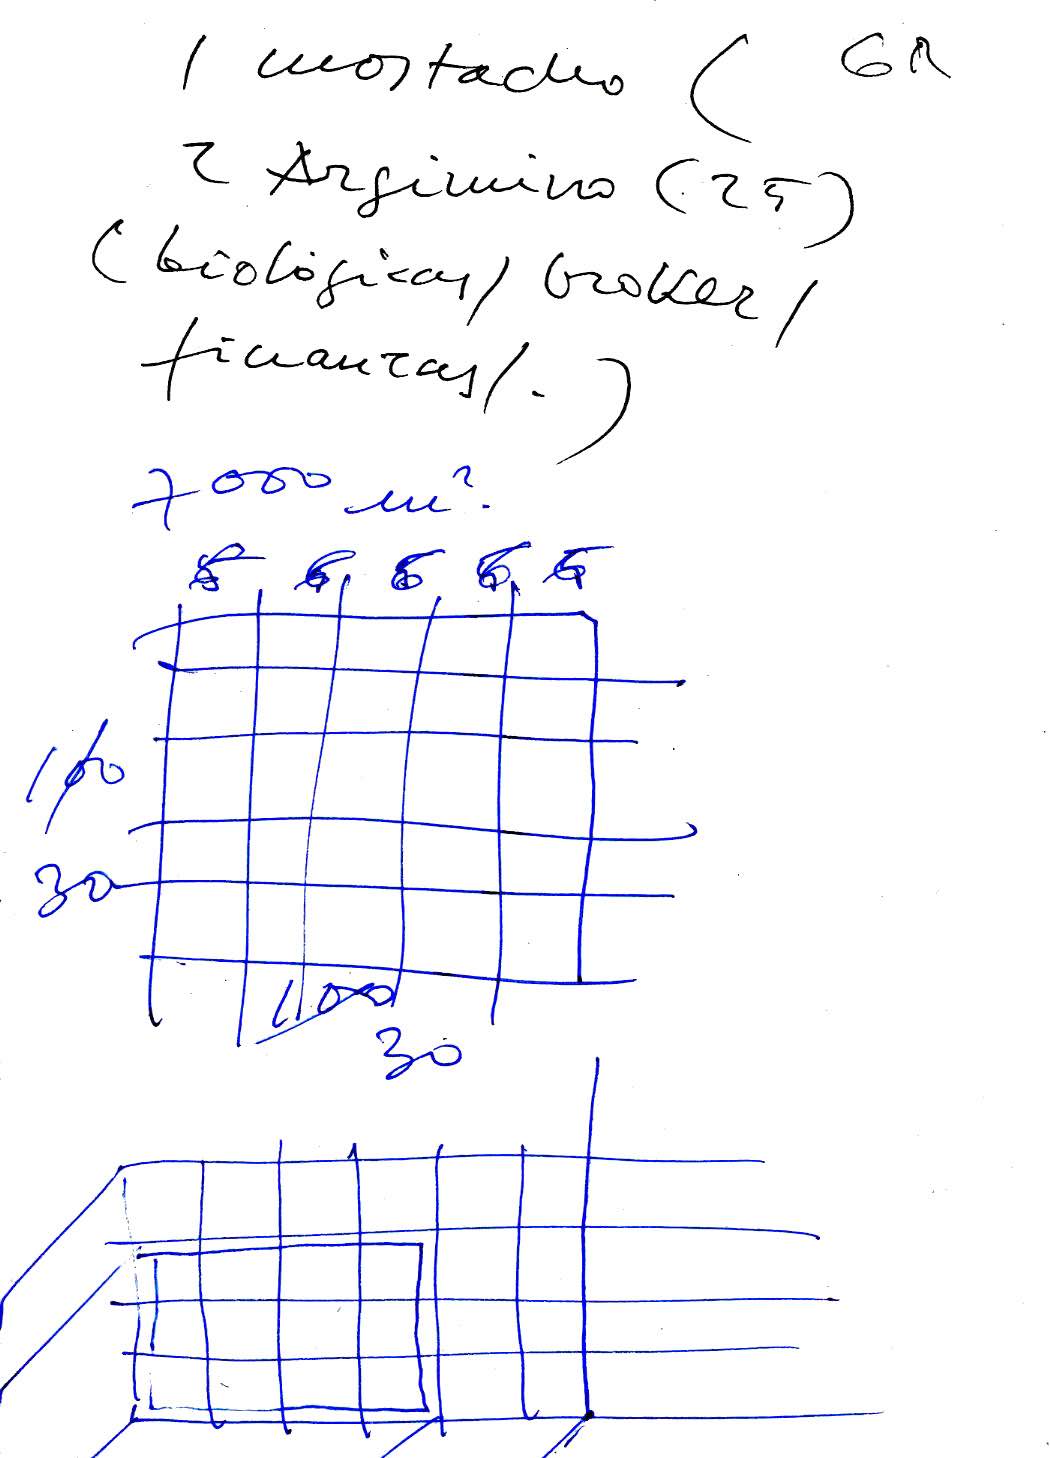 1 mostacho ( GR
2 Argimiro (25)
(biológicas/ broker/
finanzas/.)
7000 m².
6 6 6 6
100
30
100
30